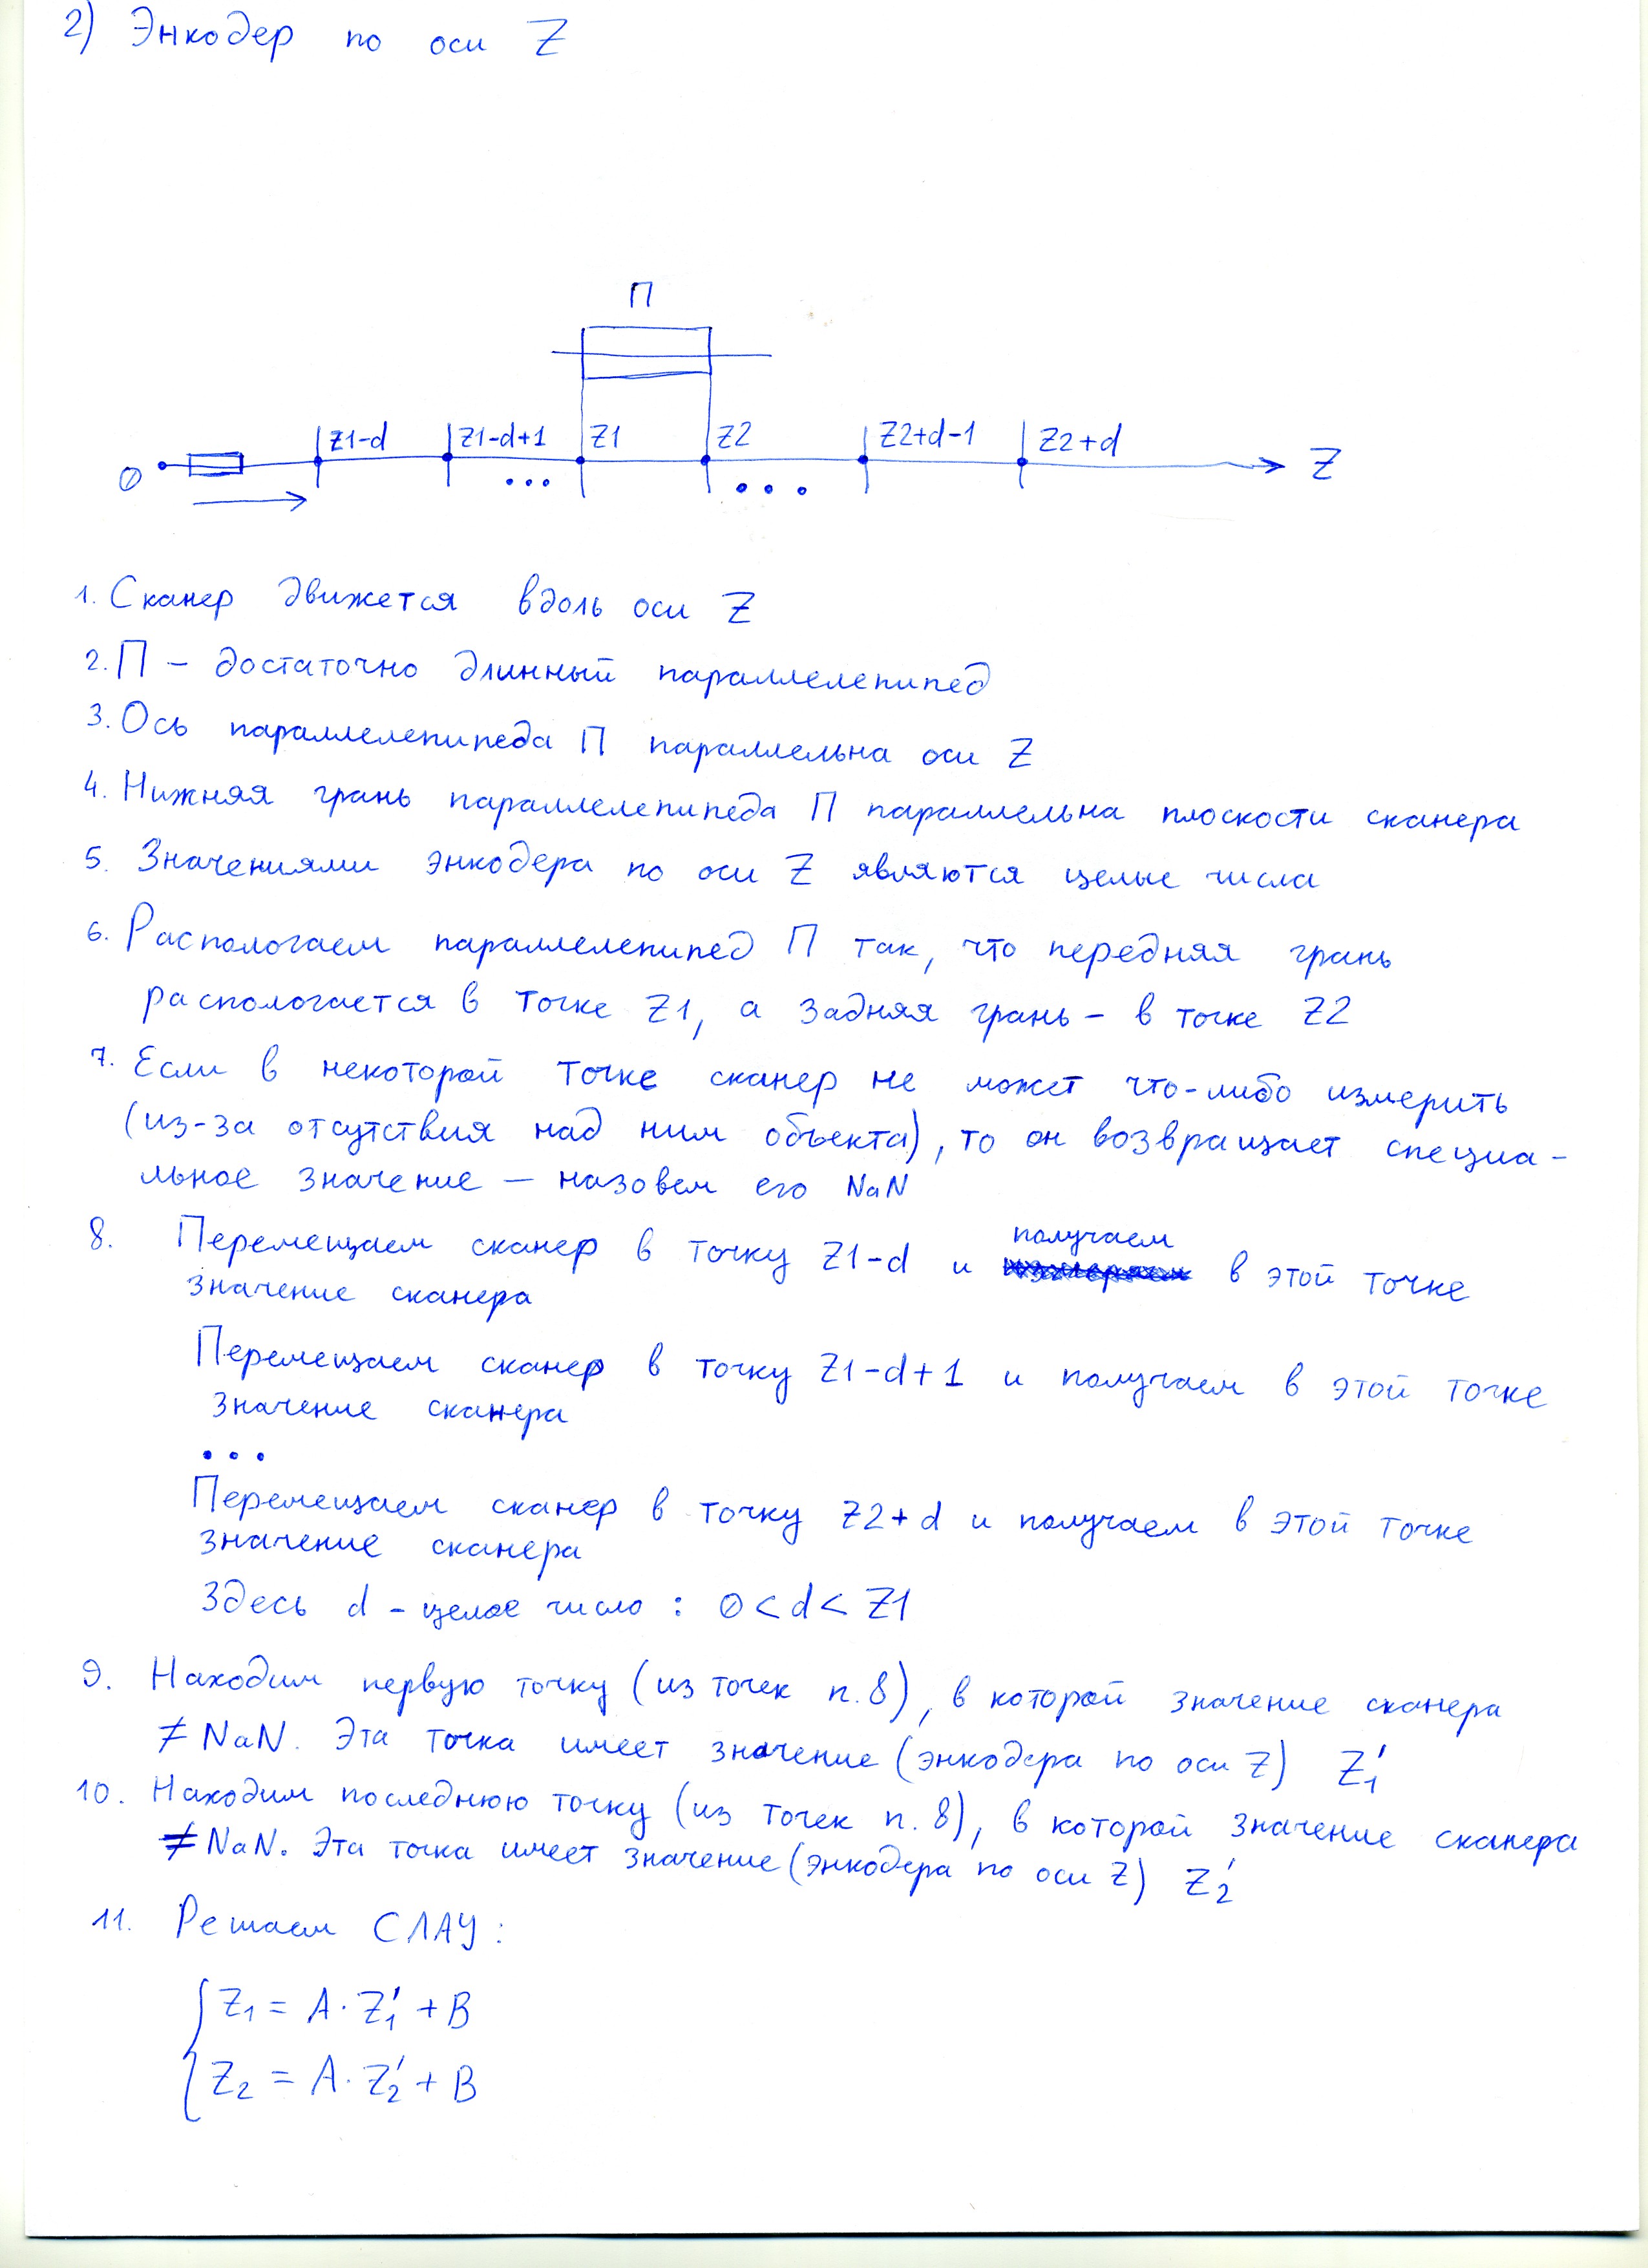 2) Энкодер по оси Z
П
Z1-d Z1-d+1 Z1 Z2 Z2+d-1 Z2+d
0 ... ... Z
1. Сканер движется вдоль оси Z
2. П – достаточно длинный параллелепипед
3. Ось параллелепипеда П параллельна оси Z
4. Нижняя грань параллелепипеда П параллельна плоскости сканера
5. Значениями энкодера по оси Z являются целые числа
6. Распологаем параллелепипед П так, что передняя грань
распологается в точке Z1, а задняя грань – в точке Z2
7. Если в некоторой точке сканер не может что-либо измерить
(из-за отсутствия над ним объекта), то он возвращает специа-
льное значение – назовем его NaN
8. Перемещаем сканер в точку Z1-d и получаем в этой точке
значение сканера
Перемещаем сканер в точку Z1-d+1 и получаем в этой точке
значение сканера
...
Перемещаем сканер в точку Z2+d и получаем в этой точке
значение сканера
Здесь d – целое число : 0 < d < Z1
9. Находим первую точку (из точек п. 8), в которой значение сканера
≠ NaN. Эта точка имеет значение (энкодера по оси Z) Z₁'
10. Находим последнюю точку (из точек п. 8), в которой значение сканера
≠ NaN. Эта точка имеет значение (энкодера по оси Z) Z₂'
11. Решаем СЛАУ:
Z₁ = A · Z₁' + B
Z₂ = A · Z₂' + B